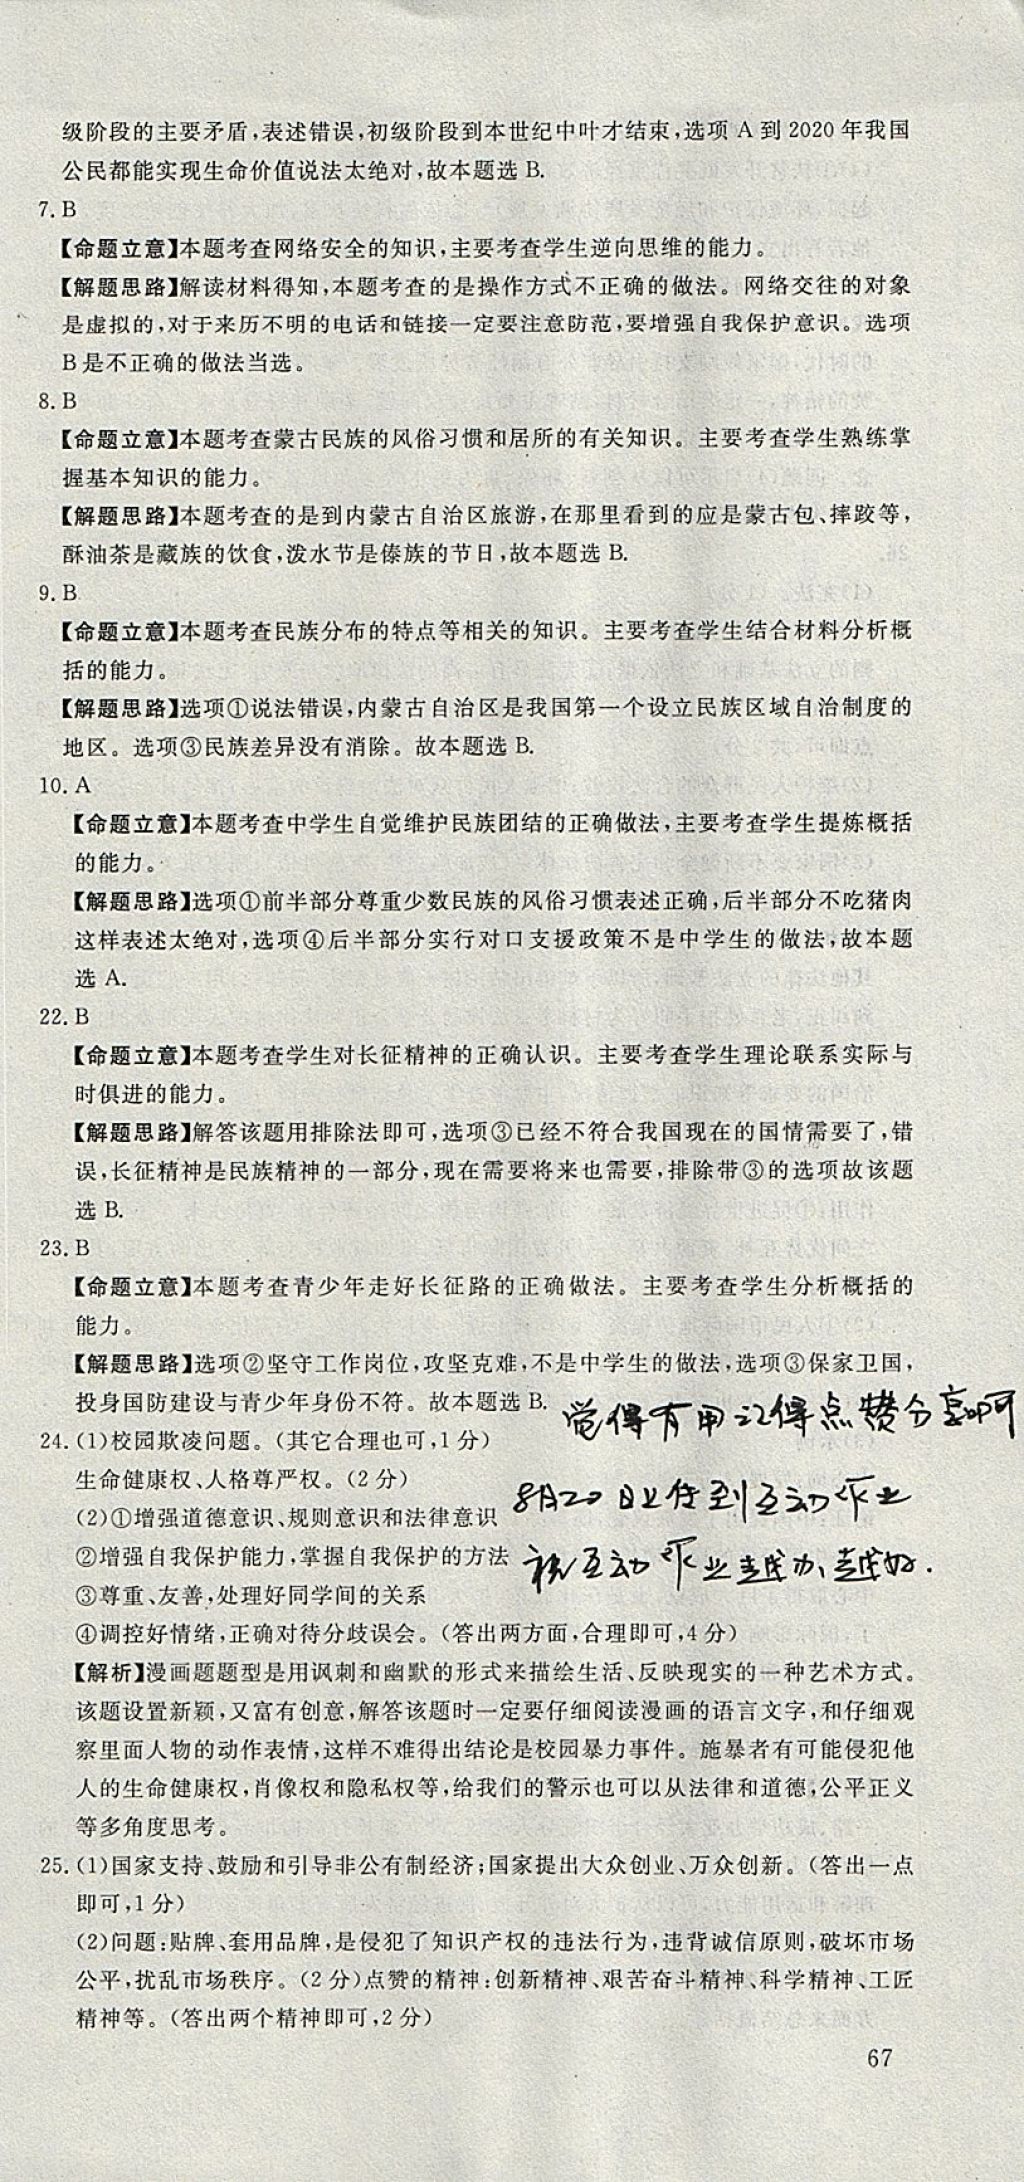 级阶段的主要矛盾,表述错误,初级阶段到本世纪中叶才结束,选项 A 到 2020 年我国
公民都能实现生命价值说法太绝对,故本题选 B.
7. B
【命题立意】本题考查网络安全的知识,主要考查学生逆向思维的能力。
【解题思路】解读材料得知,本题考查的是操作方式不正确的做法。网络交往的对象
是虚拟的,对于来历不明的电话和链接一定要注意防范,要增强自我保护意识。选项
B 是不正确的做法当选。
8. B
【命题立意】本题考查蒙古民族的风俗习惯和居所的有关知识。主要考查学生熟练掌
握基本知识的能力。
【解题思路】本题考查的是到内蒙古自治区旅游,在那里看到的应是蒙古包、摔跤等,
酥油茶是藏族的饮食,泼水节是傣族的节日,故本题选 B.
9. B
【命题立意】本题考查民族分布的特点等相关的知识。主要考查学生结合材料分析概
括的能力。
【解题思路】选项①说法错误,内蒙古自治区是我国第一个设立民族区域自治制度的
地区。选项③民族差异没有消除。故本题选 B.
10. A
【命题立意】本题考查中学生自觉维护民族团结的正确做法,主要考查学生提炼概括
的能力。
【解题思路】选项①前半部分尊重少数民族的风俗习惯表述正确,后半部分不吃猪肉
这样表述太绝对,选项④后半部分实行对口支援政策不是中学生的做法,故本题
选 A.
22. B
【命题立意】本题考查学生对长征精神的正确认识。主要考查学生理论联系实际与
时俱进的能力。
【解题思路】解答该题用排除法即可,选项③已经不符合我国现在的国情需要了,错
误,长征精神是民族精神的一部分,现在需要将来也需要,排除带③的选项故该题
选 B.
23. B
【命题立意】本题考查青少年走好长征路的正确做法。主要考查学生分析概括的
能力。
【解题思路】选项②坚守工作岗位,攻坚克难,不是中学生的做法,选项③保家卫国,
投身国防建设与青少年身份不符。故本题选 B.
觉得有用记得点赞分享啊
24. (1)校园欺凌问题。(其它合理也可,1 分)
生命健康权、人格尊严权。(2 分)
8月20日上传到互动作业
(2)①增强道德意识、规则意识和法律意识
②增强自我保护能力,掌握自我保护的方法
祝互动作业越办越好.
③尊重、友善,处理好同学间的关系
④调控好情绪,正确对待分歧误会。(答出两方面,合理即可,4 分)
【解析】漫画题题型是用讽刺和幽默的形式来描绘生活、反映现实的一种艺术方式。
该题设置新颖,又富有创意,解答该题时一定要仔细阅读漫画的语言文字,和仔细观
察里面人物的动作表情,这样不难得出结论是校园暴力事件。施暴者有可能侵犯他
人的生命健康权,肖像权和隐私权等,给我们的警示也可以从法律和道德,公平正义
等多角度思考。
25. (1)国家支持、鼓励和引导非公有制经济;国家提出大众创业、万众创新。(答出一点
即可,1 分)
(2)问题:贴牌、套用品牌,是侵犯了知识产权的违法行为,违背诚信原则,破坏市场
公平,扰乱市场秩序。(2 分)点赞的精神:创新精神、艰苦奋斗精神、科学精神、工匠
精神等。(答出两个精神即可,2 分)
67